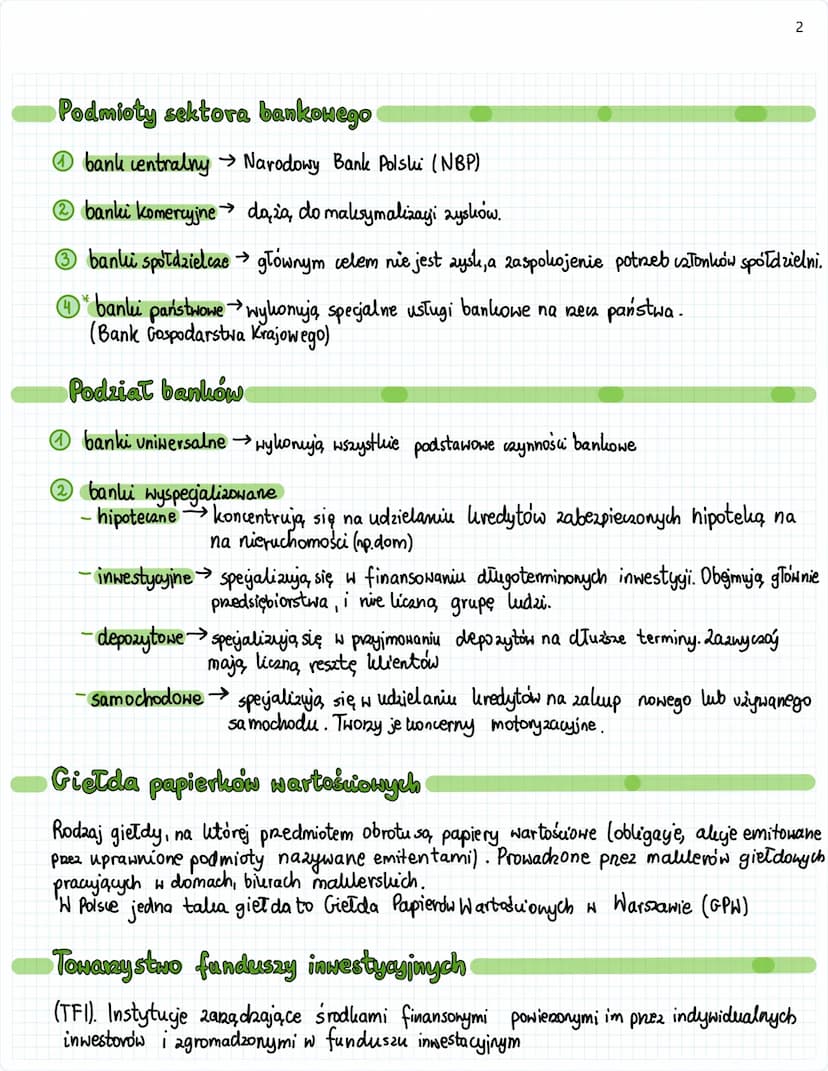 2
Podmioty sektora bankowego
1 bank centralny → Narodowy Bank Polski (NBP)
2 banki komercyjne → dążą do maksymalizacji zysków.
3 banki spółdzielcze → głównym celem nie jest zysk, a zaspokojenie potrzeb członków spółdzielni.
4 * banki państwowe → wykonują specjalne usługi bankowe na rzecz państwa.
(Bank Gospodarstwa Krajowego)
Podział banków
1 banki uniwersalne → wykonują wszystkie podstawowe czynności bankowe
2 banki wyspecjalizowane
- hipoteczne → koncentrują się na udzielaniu kredytów zabezpieczonych hipoteką na
na nieruchomości (np.dom)
- inwestycyjne → specjalizują się w finansowaniu długoterminowych inwestycji. Obejmują głównie
przedsiębiorstwa, i nie liczną grupę ludzi.
- depozytowe → specjalizują się w przyjmowaniu depozytów na dłuższe terminy. Zazwyczaj
mają liczną resztę klientów
- samochodowe → specjalizują się w udzielaniu kredytów na zakup nowego lub używanego
samochodu. Tworzy je koncerny motoryzacyjne.
Giełda papierków wartościowych
Rodzaj giełdy, na której przedmiotem obrotu są papiery wartościowe (obligacje, akcje emitowane
przez uprawnione podmioty nazywane emitentami). Prowadzone przez maklerów giełdowych
pracujących w domach, biurach maklerskich.
W Polsce jedna taka giełda to Giełda Papierów Wartościowych w Warszawie (GPW)
Towarzystwo funduszy inwestycyjnych
(TFI). Instytucje zarządzające środkami finansowymi powierzonymi im przez indywidualnych
inwestorów i zgromadzonymi w funduszu inwestacyjnym